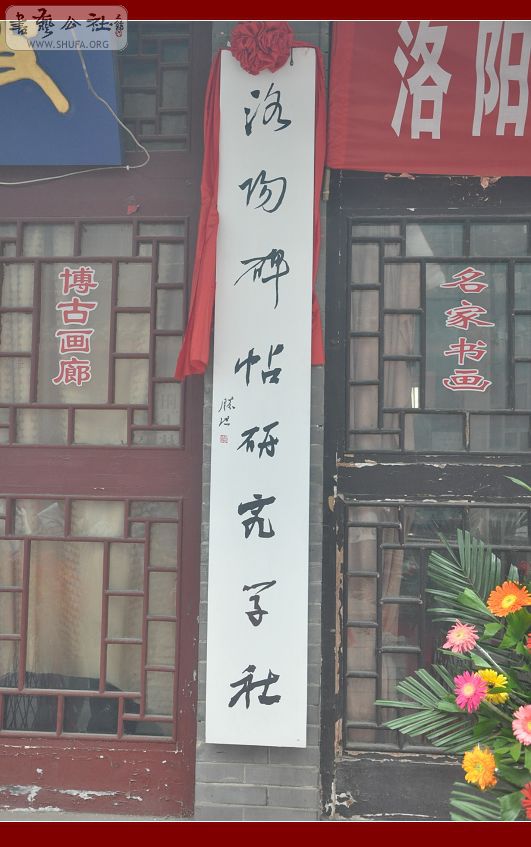 書艺公社
WWW.SHUFA.ORG
洛阳
洛阳碑帖研究学社
博古画廊
名家书画